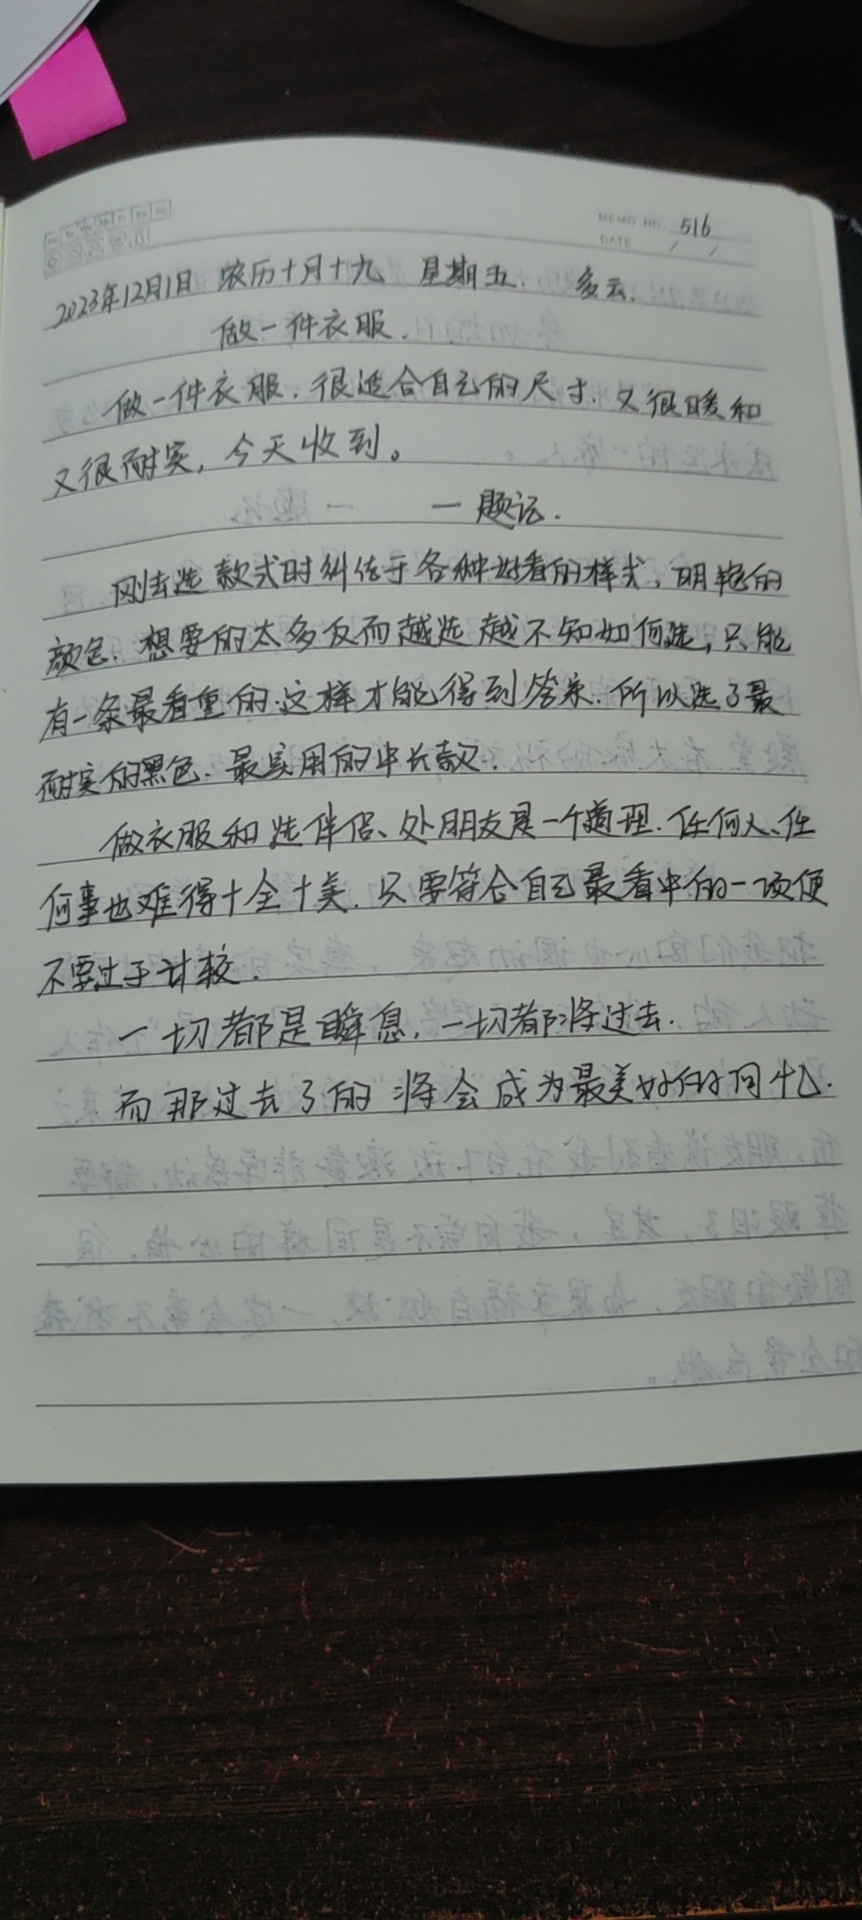 MEMO NO. 516
DATE / /
2023年12月1日 农历十月十九 星期五 多云.
做一件衣服.
做一件衣服.很适合自己的尺寸.又很暖和
又很耐实,今天收到。
一题记.
刚去选款式时纠结于各种好看的样式,明艳的
颜色.想要的太多反而越选越不知如何选,只能
有一条最看重的.这样才能得到答案.所以选了最
耐实的黑色.最实用的中长款.
做衣服和选伴侣、处朋友是一个道理.任何人、任
何事也难得十全十美.只要符合自己最看中的一项便
不要过于计较.
一切都是瞬息,一切都将过去.
而那过去了的将会成为最美好的回忆.